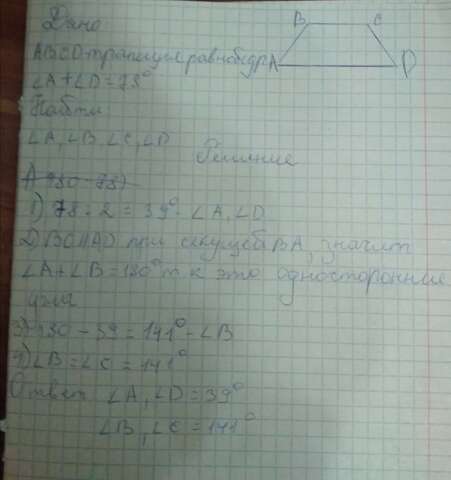 Дано: B C
ABCD-трапеция равнобедр A D
∠A+∠D=78°
Найти:
∠A, ∠B, ∠C, ∠D
Решение
1) 78:2=39°-∠A, ∠D
2) BC||AD при секущей BA, значит
∠A+∠B=180° т.к это односторонние
углы
3) 180-39=141°-∠B
4) ∠B=∠C=141°
Ответ: ∠A, ∠D=39°
∠B, ∠C=141°